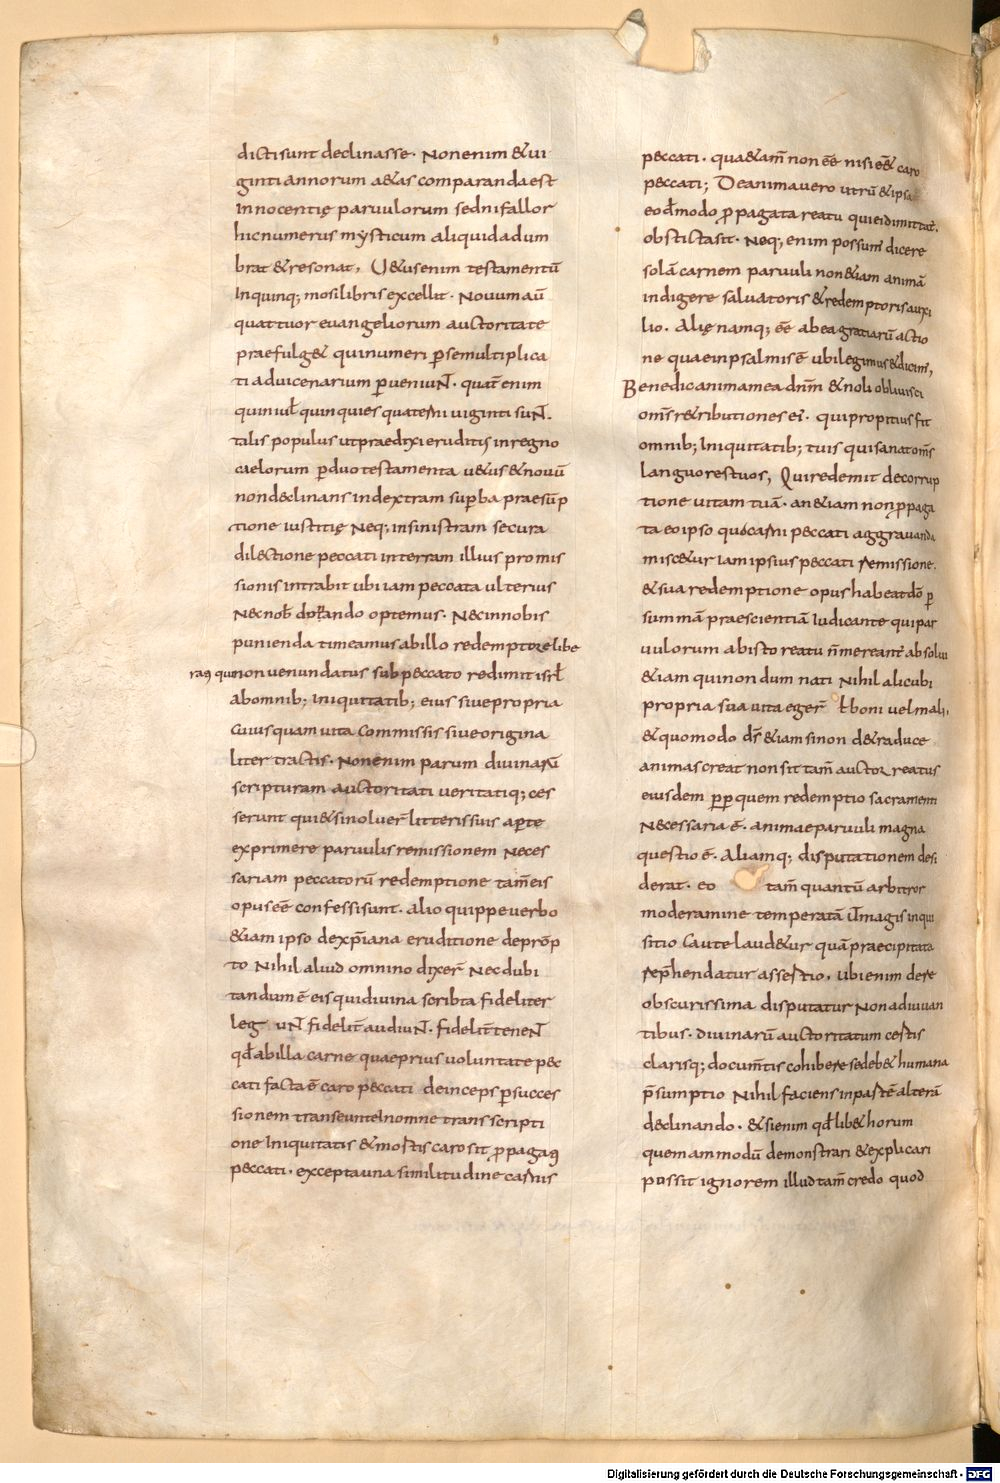 dicti sunt declinasse. Non enim &ui
ginti annorum a&as comparanda est
innocentię paruulorum sed ni fallor
hic numerus mysticum aliquid adum
brat &resonat, U&us enim testamentū
In quinq; mosi libris excellit. Nouum aū
quattuor euangeliorum auctoritate
praefulg& qui numeri p̱ se multiplica
ti ad uicenarium p̱ueniuNt. quat̄ enim
quini ul̄ quinquies quaterni uiginti suNt.
talis populus ut praedixi eruditus in regno
caelorum p̱ duo testamenta u&us &nouū
non declinans in dextram sup̱ba praesūp
tione iustitię Neq; in sinistram secura
dilectione peccati in terram illius promis
sionis intrabit ubi iam peccata ulterius
Nec nob̄ donando optemus. Nec in nobis
punienda timeamus ab illo redemptore libe
rati qui non uenundatus sub peccato redimit isrl̄
ab omnib; iniquitatib; eius siue propria
cuiusquam uita commissis siue origina
liter tractis. Non enim parum diuinarū
scripturam auctoritati ueritatiq; ces
serunt qui &si noluer̄ litteris suis ap̱te
exprimere paruulis remissionem neces
sariam peccatorū redemptione tam̄ eis
opus eē confessi sunt. alio quippe uerbo
&iam ipso de xp̄iana eruditione deprōp
to Nihil aliud omnino dixer̄ Nec dubi
tandum ē eis qui diuina scribta fideliter
leguNt fidelit̄ audiuNt. fidelit̄ teneNt
qd̄ ab illa carne quae prius uoluntate pec
cati facta ē caro peccati deinceps p̱ succes
sionem transeunte In omne transscripti
one iniquitatis &mortis caro sit p̱pagata
peccati. excepta una similitudine carnis
peccati. qua &iam̄ non eē nisi eē& caro
peccati; De anima uero utrū &ipsa
eod̄ modo p̱pagata reatu qui ei dimittat̄.
obstricta sit. Neq; enim possum̄ dicere
solā carnem paruuli non &iam animā
indigere saluatoris &redemptoris auxi
lio. Alię namq; eē ab ea gratiarū actio
ne quae in psalmis ē ubi legimus &dicim̄,
Benedic anima mea dnm̄ &noli obliuisci
oms̄ r&ributiones ei. qui propitius fit
omnib; Iniquitatib; tuis qui sanat oms̄
languores tuos, Qui redemit de corrup
tione uitam tuā. an &iam non p̱paga
ta eo ipso quo carni peccati aggrauanda
misc&ur iam ipsius peccati remissione.
&sua redemptione opus habeat dō p̱
summā praescientiā Iudicante qui par
uulorum ab isto reatu n̄ mereant̄ absolui
&iam qui nondum nati Nihil alicubi
propria sua uita eger̄ l̄ boni uel mali,
&quomodo ds̄ &iam si non de traduce
animas creat non sit tam̄ auctor reatus
eiusdem p̱p̱ quem redemptio sacramenti
Necessaria ē. animae paruuli magna
questio ē. Aliamq; disputationem desi
derat. eo tam̄ quantū arbitror
moderamine temperatā ut̄ magis inqui
sitio caute laud&ur quā praecipitata
rep̄hendatur assertio, ubi enim de re
obscurissima disputatur Non adiuuan
tibus. diuinarū auctoritatum certis
clarisq; documtīs cohibere se deb& humana
p̄sumptio Nihil faciens in partē alterā
declinando. &si enim qd̄lib& horum
quemammodū demonstrari &explicari
possit ignorem illud tam̄ credo quod
Digitalisierung gefördert durch die Deutsche Forschungsgemeinschaft - DFG